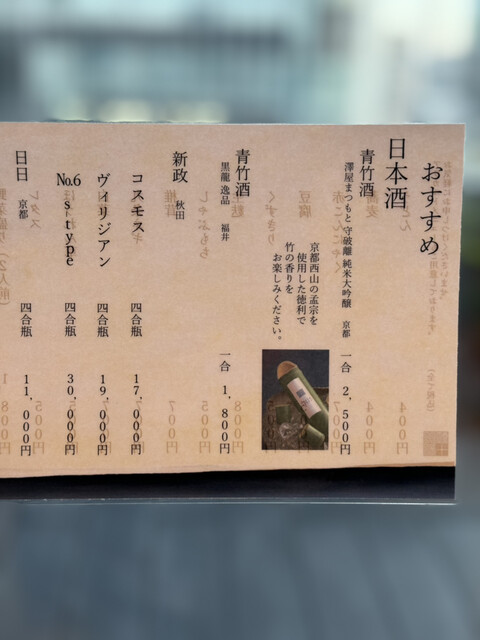 おすすめ
日本酒
青竹酒
澤屋まつもと 守破離 純米大吟醸 京都 一合 2,500円
京都西山の孟宗を
使用した徳利で
竹の香りを
お楽しみください。
青竹酒
黒龍 逸品 福井 一合 1,800円
新政 秋田
コスモス 四合瓶 17,000円
ヴィリジアン 四合瓶 19,000円
No.6 s-type 四合瓶 30,000円
日日 京都 四合瓶 11,000円